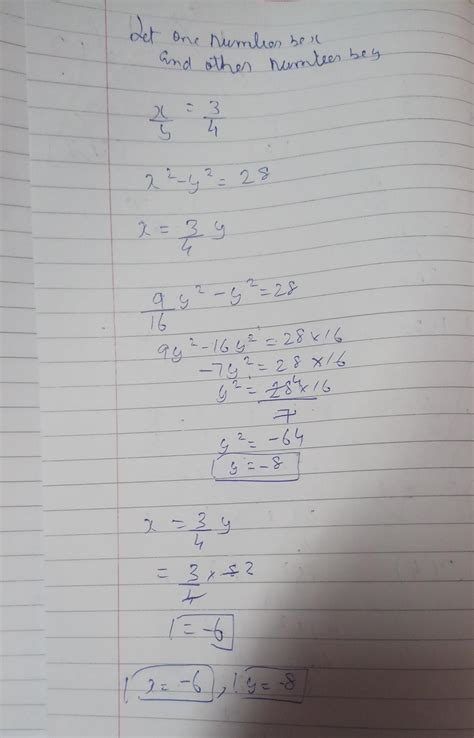 Let one number be x
and other number be y
x/y = 3/4
x² - y² = 28
x = 3/4 y
9/16 y² - y² = 28
9y² - 16y² = 28 × 16
-7y² = 28 × 16
y² = 28 4 × 16 / 7
y² = -64
y = -8
x = 3/4 y
= 3/4 × 8 2
= -6
x = -6, y = -8